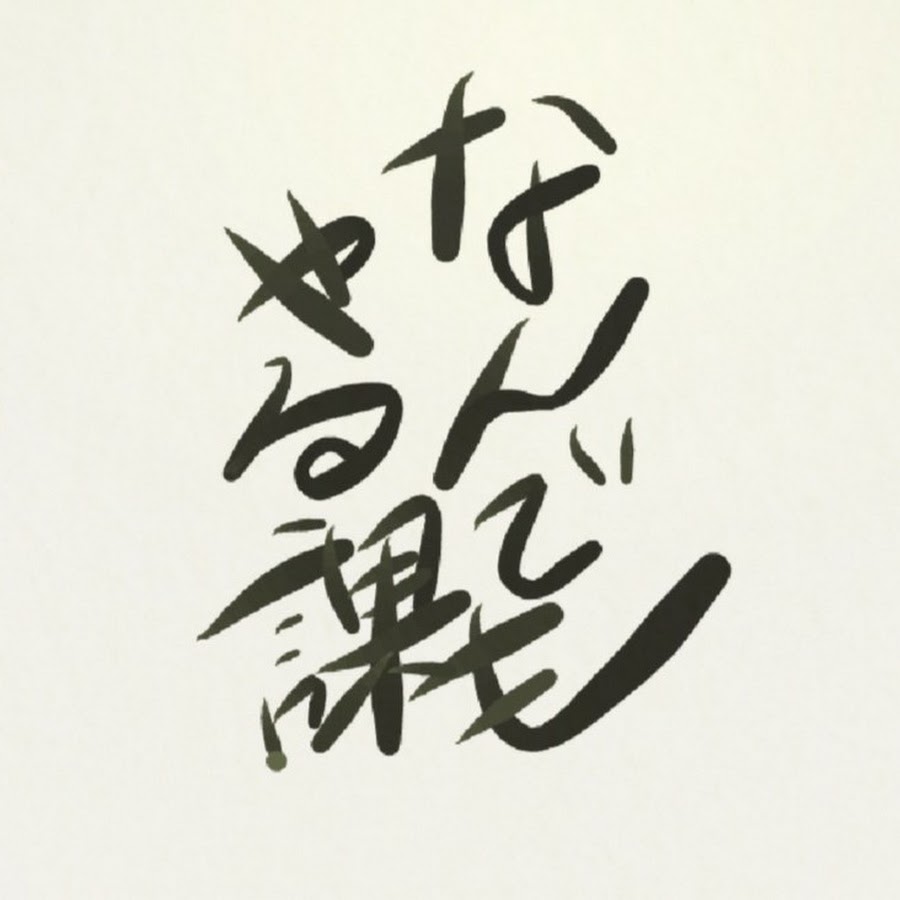 なんでも
やる課